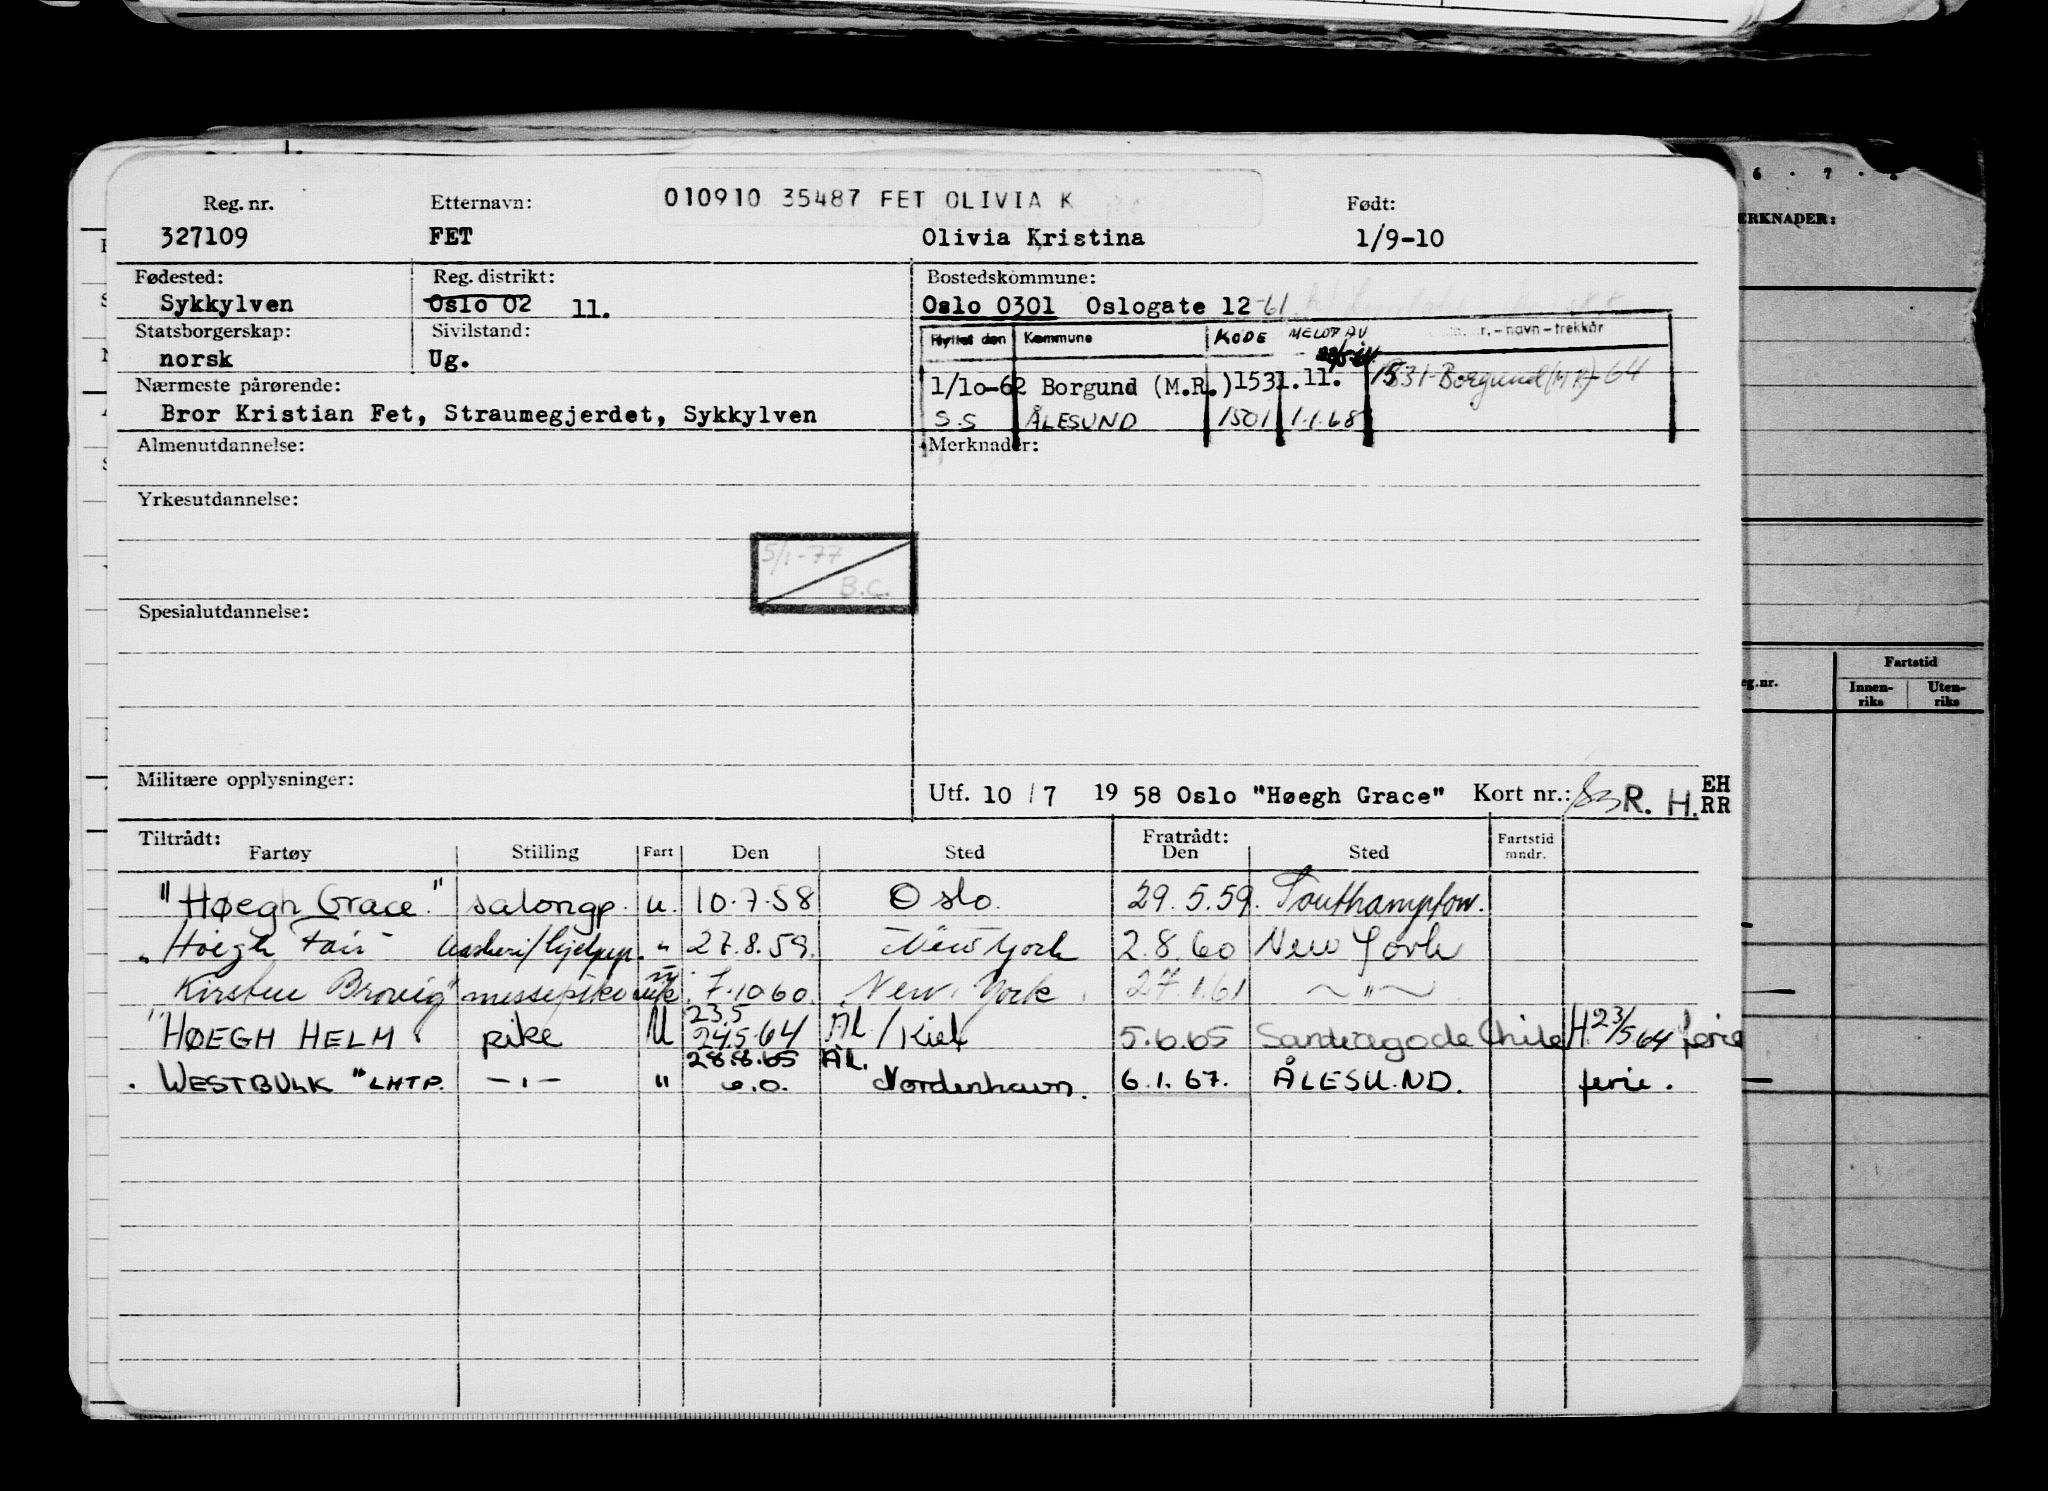 6 . 7 .
ERKNADER:
010910 35487 FET OLIVIA K
Reg. nr. Etternavn: Født:
327109 FET Olivia Kristina 1/9-10
Fødested: Reg. distrikt: Bostedskommune:
Sykkylven Oslo 02 11. Oslo 0301 Oslogate 12 -61
Statsborgerskap: Sivilstand: Flyttet den Kommune KODE MELDT AV r. - navn - trekkår
norsk Ug.
Nærmeste pårørende: 1/10-62 Borgund (M.R.) 1531. 11. 1531-Borgund (MR)-64
Bror Kristian Fet, Straumegjerdet, Sykkylven S.S ÅLESUND 1501 1.1.68
Almenutdannelse: Merknader:
Yrkesutdannelse:
5/1-77
B.C.
Spesialutdannelse:
Fartstid
eg.nr. Innen-riks Uten-riks
Militære opplysninger: Utf. 10 / 7 19 58 Oslo "Høegh Grace" Kort nr.: R. H. EH
RR
Tiltrådt: Fratrådt: Fartstid
Fartøy Stilling Fart Den Sted Den Sted mndr.
"Høegh Grace." salongp. u. 10.7.58 Oslo. 29.5.59. Southampton.
" Høegh Fair " 27.8.59. New York 2.8.60 New York
Kirsten Brovig" messepike 7.10 60. New York 27.1.61 — " —
23.5
"HØEGH HELM pike U 24.5.64 Ål / Kiel 5.6.65 Chile H 23/5 64 ferie
28.8.65 Ål.
. WESTBULK "LHTP. — " — " 6.0. Nordenhavn. 6.1.67. ÅLESUND. ferie.